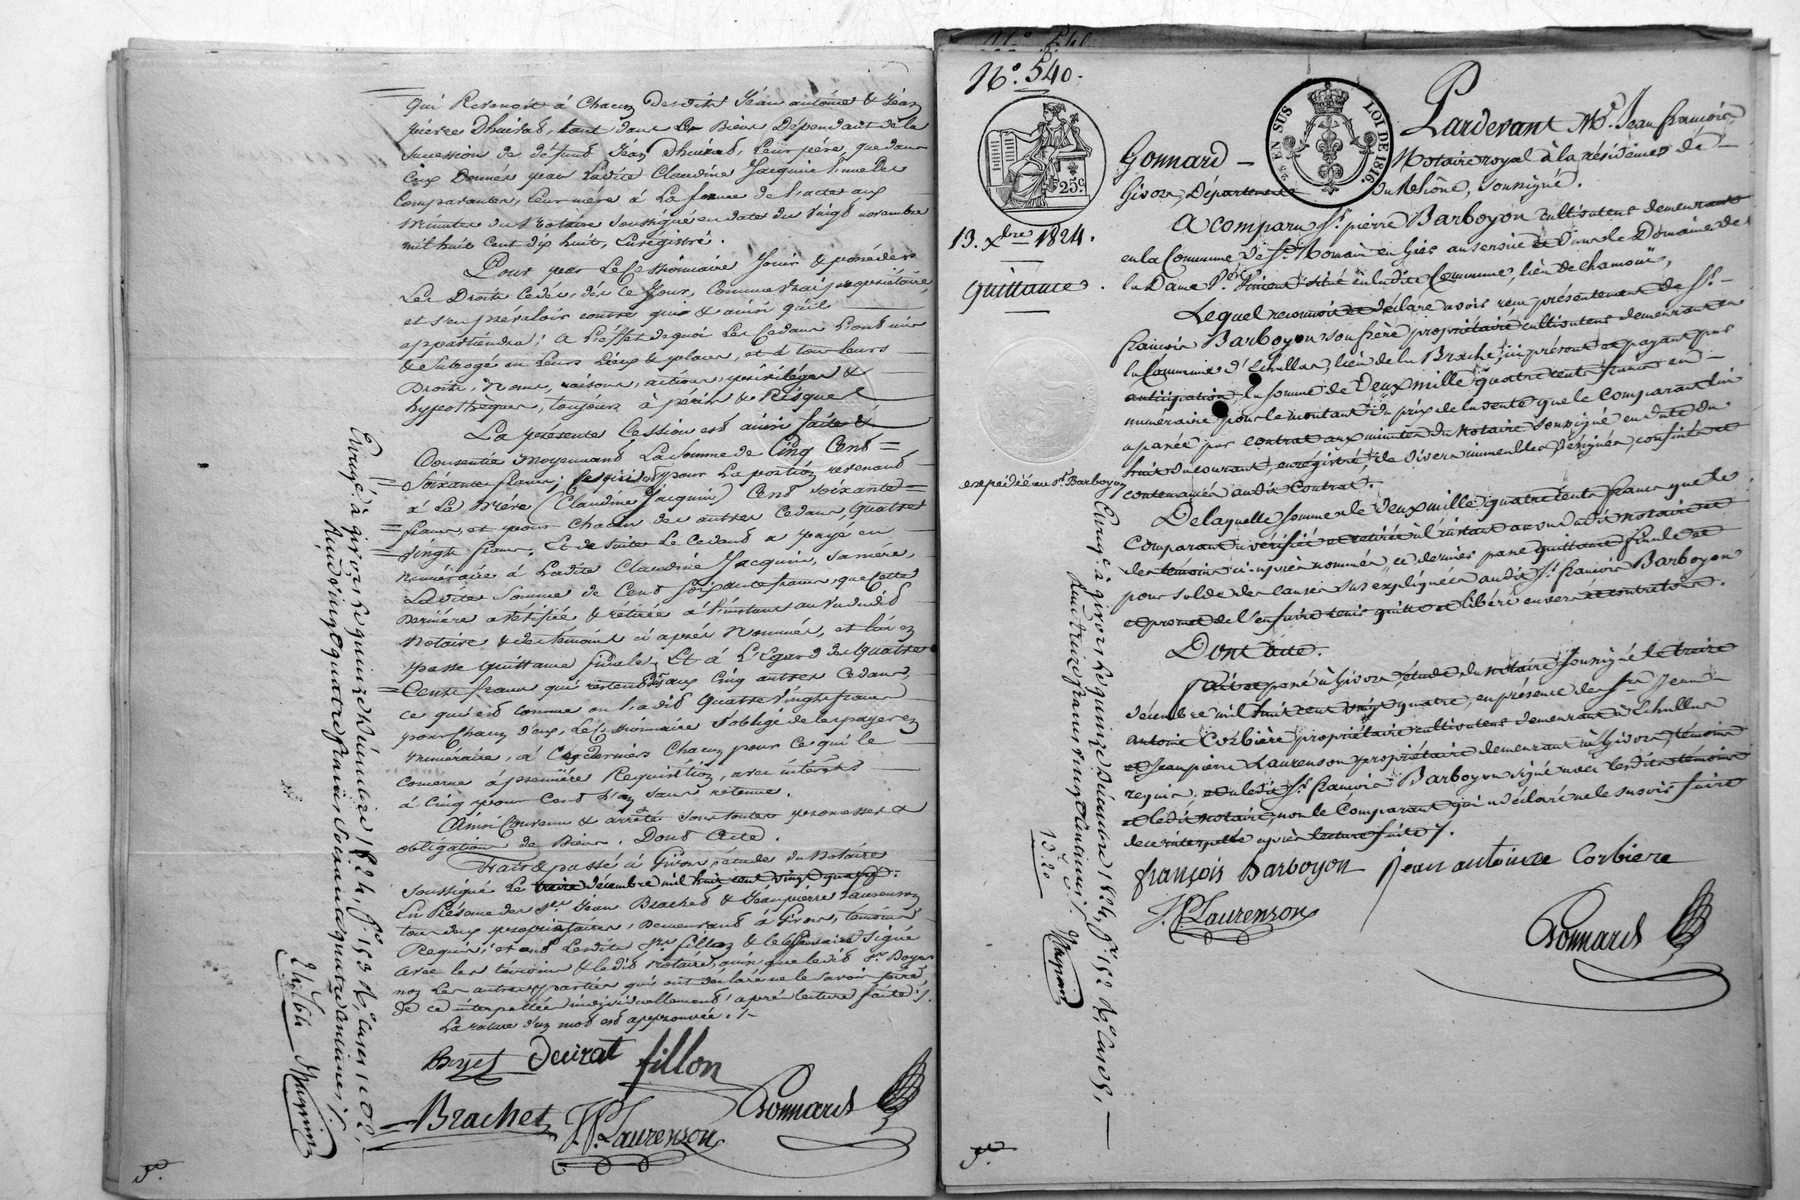 qui Revenoit à Chacun Desdits Jean antoine & Jean
pierre Dhuirat, tant dans les Biens Dépendant de la
succession de défunt Jean Dhuirat, leur père, que dans
Ceux Donnés par ladite Claudine Jacquin l'une des
Comparantes, leur mère à la forme de l'acte aux
minutes du Notaire soussigné en date du vingt novembre
mil huit cent dix huit, Enregistré.
Pour par le Cessionnaire Jouir & posséder
Les Droits cédés, dès ce Jour, Comme vrai propriétaire,
et s'en prévaloir contre qui & ainsi qu'il
appartiendra; A l'effet de quoi les Cédans l'ont mis
& subrogé en Leurs Lieux & places, et à tous leurs
Droits, Noms, raisons, actions, privilèges &
hypothèques, toujours à périls & Risques
La présente Cession est ainsi faite &
Consentie moyennant La somme de Cinq Cent
Soixante francs; pour La portion revenant
à La Mère (Claudine Jacquin) Cent soixante
francs, et pour chacun des autres Cédans, quatre
vingt francs. Et de suite Le Cédant a payé en
numéraire à Ladite Claudine Jacquin, sa mère,
La dite somme de Cent soixante francs, que Cette
Dernière a vérifiée, & rétirée à l'instant au vu dudit
Notaire & des témoins ci après Nommés, et lui en
passe quittance finale; Et à L'Egard des quatre
Cents francs qui restent dûs aux Cinq autres Cédans,
ce qui est comme on l'a dit quatre vingt francs
pour chacun d'eux, Le Cessionnaire s'oblige de les payer en
Numéraire, à Ces derniers Chacun pour ce qui le
Concerne à première Requisition, avec intérêts
à Cinq pour Cent L'an sans retenue.
Ainsi Convenu & arrêté sous toutes promesses &
obligation de Biens. Dont Acte.
Fait & passé à Givors, étude du Notaire
Soussigné Le treize décembre mil huit cent vingt quatre.
En Présence des Srs Jean Brachet & Jean pierre Laurenson
tous deux propriétaires, Demeurant à Givors, témoins
Requis; et ont Lesdits Srs fillon & le Cessionnaire signé
avec les témoins & ledit Notaire, ainsi que ledit Sr Boyet
non Les autres parties qui ont déclaré ne le savoir faire,
de ce interpellée individuellement, après lecture faite ./.
La rature d'un mot est approuvée. /.
Boyet Deuirat fillon
Brachet J.P. Laurenson Gonnard
Enregé à givors le quinze Décembre 1824, fo 153 Ro cases 1 et 2.
Reçu vingt quatre francs soixante quatre centimes ./.
24f 64 Magnin
No. 540.
25 C.
25 C. EN SUS LOI DE 1816.
13. Xbre 1824.
Quittance.
expédiée au Sr Barboyon
Pardevant Me. Jean françois,
Gonnard – Notaire royal à la résidence de –
Givors, Département du Rhône, soussigné.
A comparu Sr. pierre Barboyon cultivateur demeurant
en la Commune de St. Romain en Gier au service
Lequel reconnoit et déclare avoir reçu présentement de Sr. –
françois Barboyon son frère propriétaire cultivateur demeurant en
la Commune d'Echallas, lieu de la Brache, ici présent et payant par
anticipation, la somme de Deux mille quatre cents francs en –
numéraire pour le montant du prix de la vente que le comparant lui
a passée par contrat aux minutes du Notaire soussigné en date du
huit du courant, enregistré, de divers immeubles désignés, confinés et
contenancés audit Contrat.
De laquelle somme de deux mille quatre cents francs que le
comparant a vérifiée et retirée à l'instant au vu dudit notaire et
des témoins ci-après nommés, ce dernier passe quittance finale et
pour solde des causes sus expliquées audit Sr. françois Barboyon
et promet de l'en faire tenir quitte et libéré envers et contre tous.
Dont acte.
fait et passé à Givors, étude du notaire soussigné le treize
décembre mil huit cent vingt quatre, en présence de Srs Jean –
antoine Corbière propriétaire cultivateur demeurant à Echallas
et Jean pierre Laurenson propriétaire demeurant à Givors, témoins
requis, et ledit Sr. françois Barboyon signé avec lesdits témoins
et ledit notaire, non le Comparant qui a déclaré ne le savoir faire
de ce interpellé après lecture faite ./.
françois Barboyon Jean antoine Corbiere
J.P. Laurenson Gonnard
Enregé à givors le quinze Décembre 1824, fo 152 Vo case 8,
Reçu treize francs vingt centimes ./.
13f. 20 Magnin